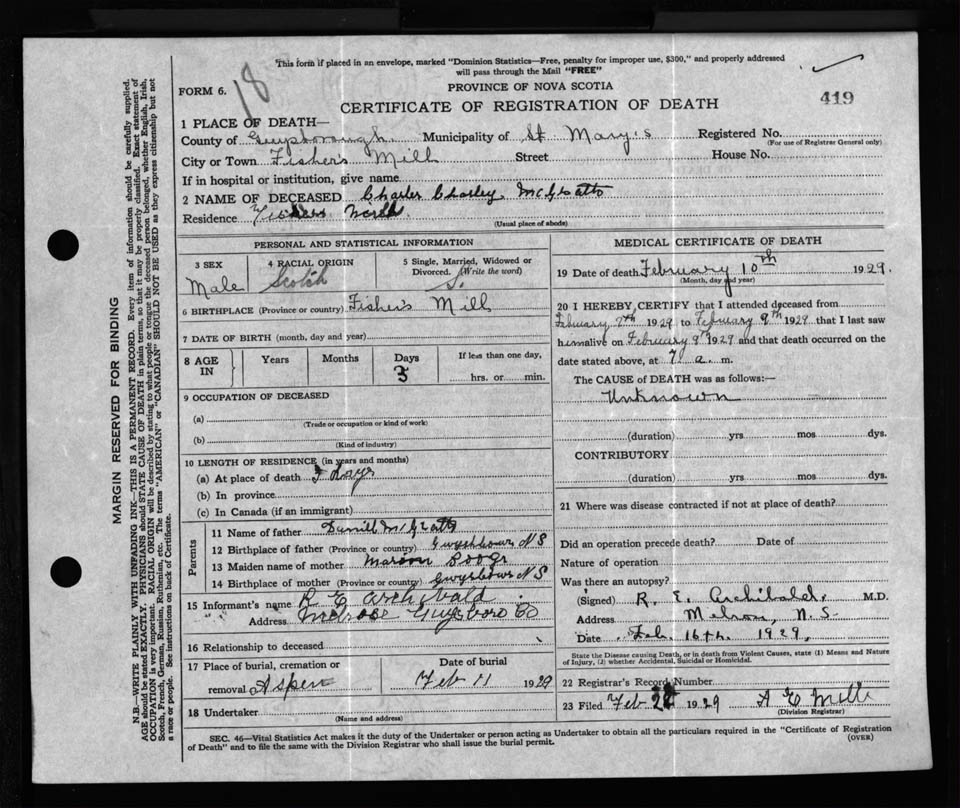 This form if placed in an envelope, marked "Dominion Statistics—Free, penalty for improper use, $300," and properly addressed
will pass through the Mail "FREE"
18
FORM 6.
PROVINCE OF NOVA SCOTIA
CERTIFICATE OF REGISTRATION OF DEATH
419
1 PLACE OF DEATH—
County of Guysborough Municipality of St. Mary's Registered No.
(For use of Registrar General only)
City or Town Fisher's Mill Street House No.
If in hospital or institution, give name
2 NAME OF DECEASED Charles Charley McGratto
Residence
(Usual place of abode)
PERSONAL AND STATISTICAL INFORMATION
3 SEX 4 RACIAL ORIGIN 5 Single, Married, Widowed or Divorced. (Write the word)
Male Scotch S.
6 BIRTHPLACE (Province or country) Fisher's Mill
7 DATE OF BIRTH (month, day and year)
8 AGE IN Years Months Days If less than one day,
3 hrs. or min.
9 OCCUPATION OF DECEASED
(a)
(Trade or occupation or kind of work)
(b)
(Kind of industry)
10 LENGTH OF RESIDENCE (in years and months)
(a) At place of death Days
(b) In province
(c) In Canada (if an immigrant)
Parents
11 Name of father
12 Birthplace of father (Province or country) N S
13 Maiden name of mother
14 Birthplace of mother (Province or country) N S
15 Informant's name R E Archibald
" " Address Melrose Guysboro Co
16 Relationship to deceased
17 Place of burial, cremation or Date of burial
removal Aspen Feb 11 1929
18 Undertaker
(Name and address)
MEDICAL CERTIFICATE OF DEATH
19 Date of death February 10th 1929.
(Month, day and year)
20 I HEREBY CERTIFY that I attended deceased from
February 7th 1929 to February 9th 1929 that I last saw
him alive on February 9th 1929 and that death occurred on the
date stated above, at 7 a. m.
The CAUSE OF DEATH was as follows:—
Unknown
(duration) yrs mos dys.
CONTRIBUTORY
(duration) yrs mos dys.
21 Where was disease contracted if not at place of death?
Did an operation precede death? Date of
Nature of operation
Was there an autopsy?
(Signed) R. E. Archibald M.D.
Address N.S.
Date Feb. 16th. 1929.
State the Disease causing Death, or in death from Violent Causes, state (1) Means and Nature
of Injury, (2) whether Accidental, Suicidal or Homicidal.
22 Registrar's Record Number
23 Filed Feb 1929
(Division Registrar)
SEC. 46—Vital Statistics Act makes it the duty of the Undertaker or person acting as Undertaker to obtain all the particulars required in the "Certificate of Registration
of Death" and to file the same with the Division Registrar who shall issue the burial permit.
(OVER)
MARGIN RESERVED FOR BINDING
N.B.—WRITE PLAINLY WITH UNFADING INK—THIS IS A PERMANENT RECORD. Every item of information should be carefully supplied.
AGE should be stated EXACTLY. PHYSICIANS should STATE CAUSE OF DEATH in plain terms, so that it may be properly classified. Exact statement of
OCCUPATION is very important. RACIAL ORIGIN will be described by stating to what people or tongue the deceased person belonged, whether English, Irish,
Scotch, French, German, Russian, Ruthenian, etc. The terms "AMERICAN" or "CANADIAN" SHOULD NOT BE USED as they express citizenship but not
a race or people. See instructions on back of Certificate.